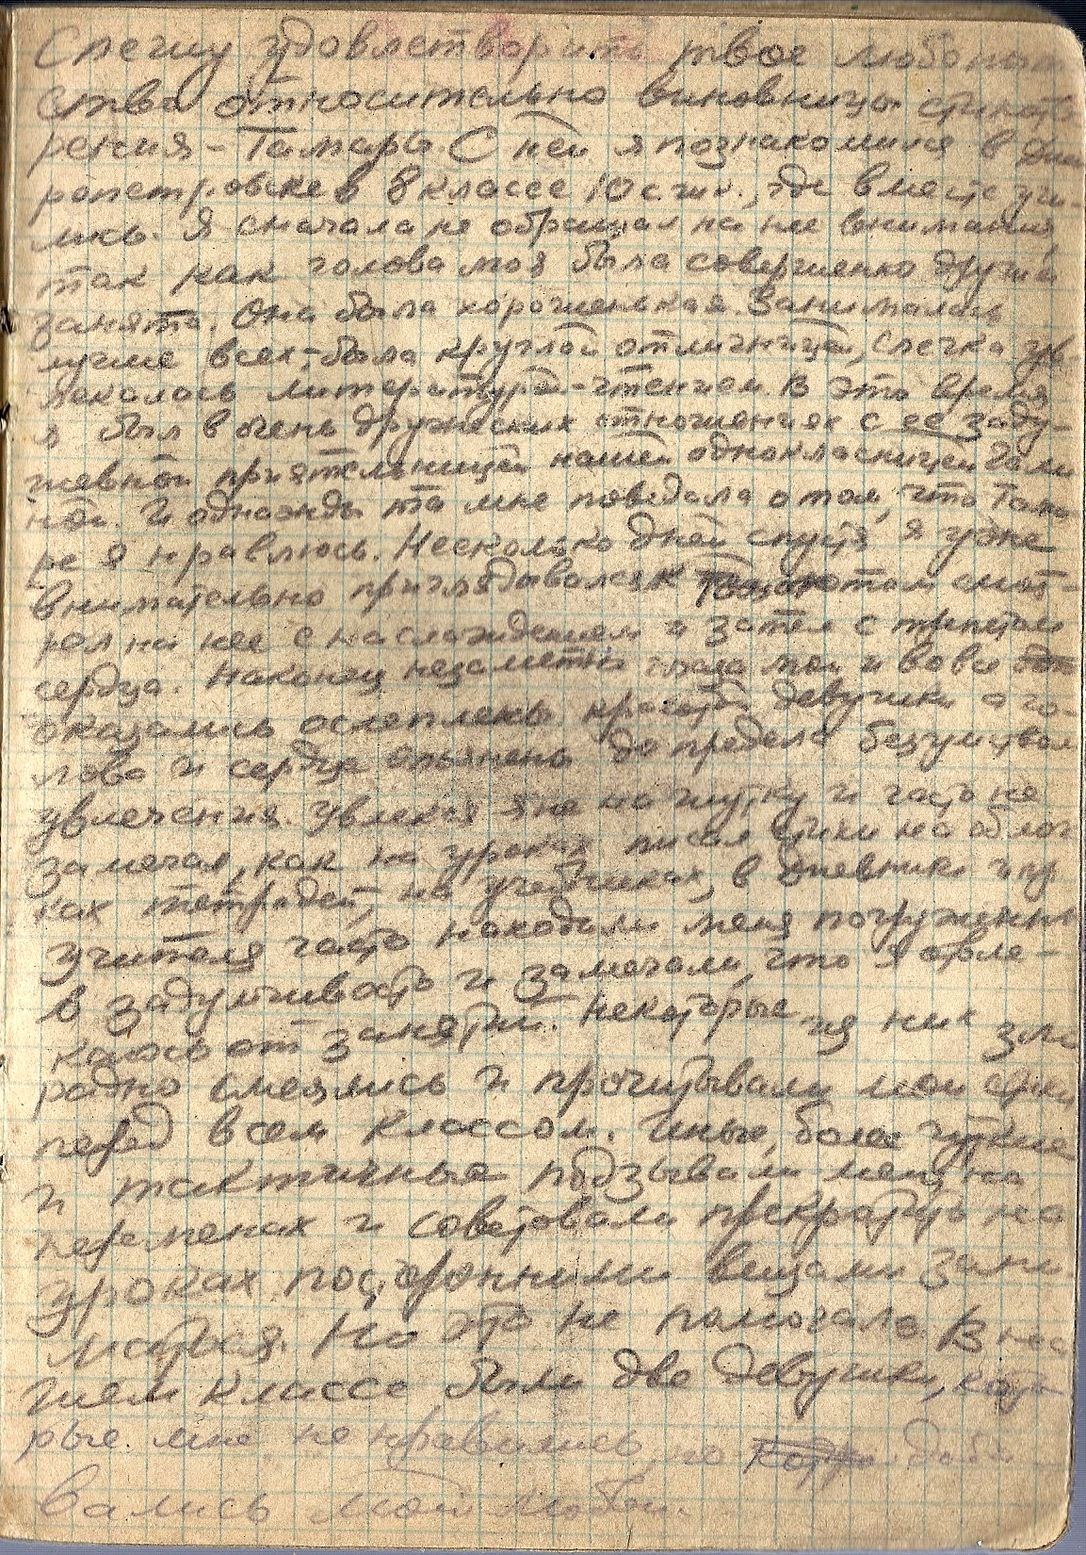 Спешу удовлетворить твое любопыт
ство относительно виновницы стихотво
рения - Тамары. С ней я познакомился в Дне
ропетровске в 8 классе 10 с.ш., где вместе учи-
лись. Я сначала не обращал на нее внимания,
так как голова моя была совершенно другим
занята. Она была хорошенькая. Занималась
лучше всех, - была круглой отличницей, слегка ув
лекалась литературой - чтением. В это время
я был в очень дружеских отношениях с ее заду-
шевной приятельницей нашей однокласницей Гали
ной. И однажды та мне поведала о том, что Тама
ре я нравлюсь. Несколько дней спустя я уже
внимательно приглядывался к потом смот-
рел на нее с наслаждением и затем с трепетом
сердца. Наконец незаметно глаза мои и вовсе
оказались ослеплены красотой девушки а го-
лова и сердце опьянены до предела безумством
увлечения. Увлекся я не на шутку и часто не
замечал, как на уроках писал стихи на облож
ках тетрадей, на учебниках, в дневнике и пр
Учителя часто находили меня погруженным
в задумчивость и замечали, что я отвле-
каюсь от занятий. Некоторые из них зло
радно смеялись и прочитывали мои стихи
перед всем классом. Иные, более чуткие
и тактичные подзывали меня на
переменах и советовали прекратить на
уроках посторонними вещами зани
маться. Но это не помогало. В на
шем классе были две девушки, кото
рые мне не нравились, но доби
вались моей любви.